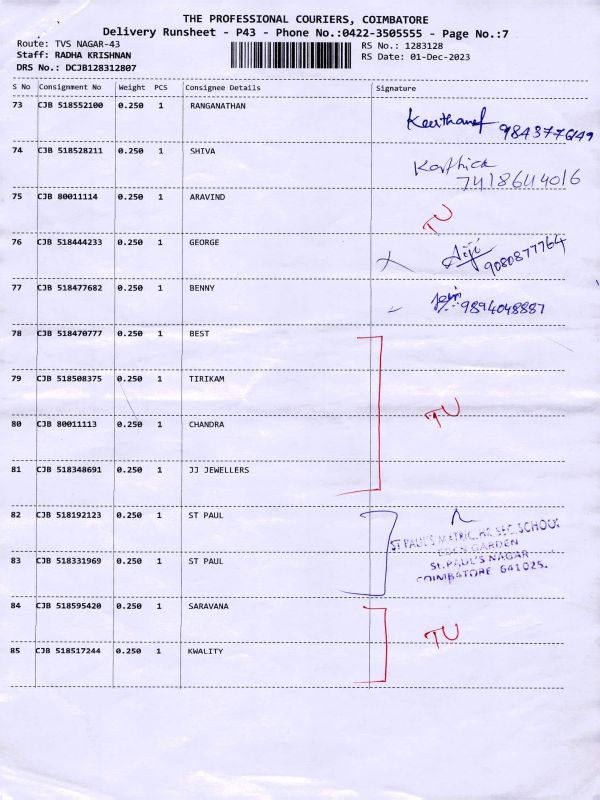 THE PROFESSIONAL COURIERS, COIMBATORE
Delivery Runsheet - P43 - Phone No.:0422-3505555 - Page No.:7
Route: TVS NAGAR-43 RS No.: 1283128
Staff: RADHA KRISHNAN RS Date: 01-Dec-2023
DRS No.: DCJB128312807
S No Consignment No Weight PCS Consignee Details Signature
73 CJB 518552100 0.250 1 RANGANATHAN
74 CJB 518528211 0.250 1 SHIVA Karthick
7418644016
75 CJB 80011114 0.250 1 ARAVIND
TU
76 CJB 518444233 0.250 1 GEORGE
9080877764
77 CJB 518477682 0.250 1 BENNY
9894048887
78 CJB 518470777 0.250 1 BEST
79 CJB 518508375 0.250 1 TIRIKAM
TU
80 CJB 80011113 0.250 1 CHANDRA
81 CJB 518348691 0.250 1 JJ JEWELLERS
82 CJB 518192123 0.250 1 ST PAUL
ST PAUL'S MATRIC. HR. SEC. SCHOOL
EDEN GARDEN
83 CJB 518331969 0.250 1 ST PAUL ST. PAUL'S NAGAR
COIMBATORE 641025.
84 CJB 518595420 0.250 1 SARAVANA
TU
85 CJB 518517244 0.250 1 KWALITY